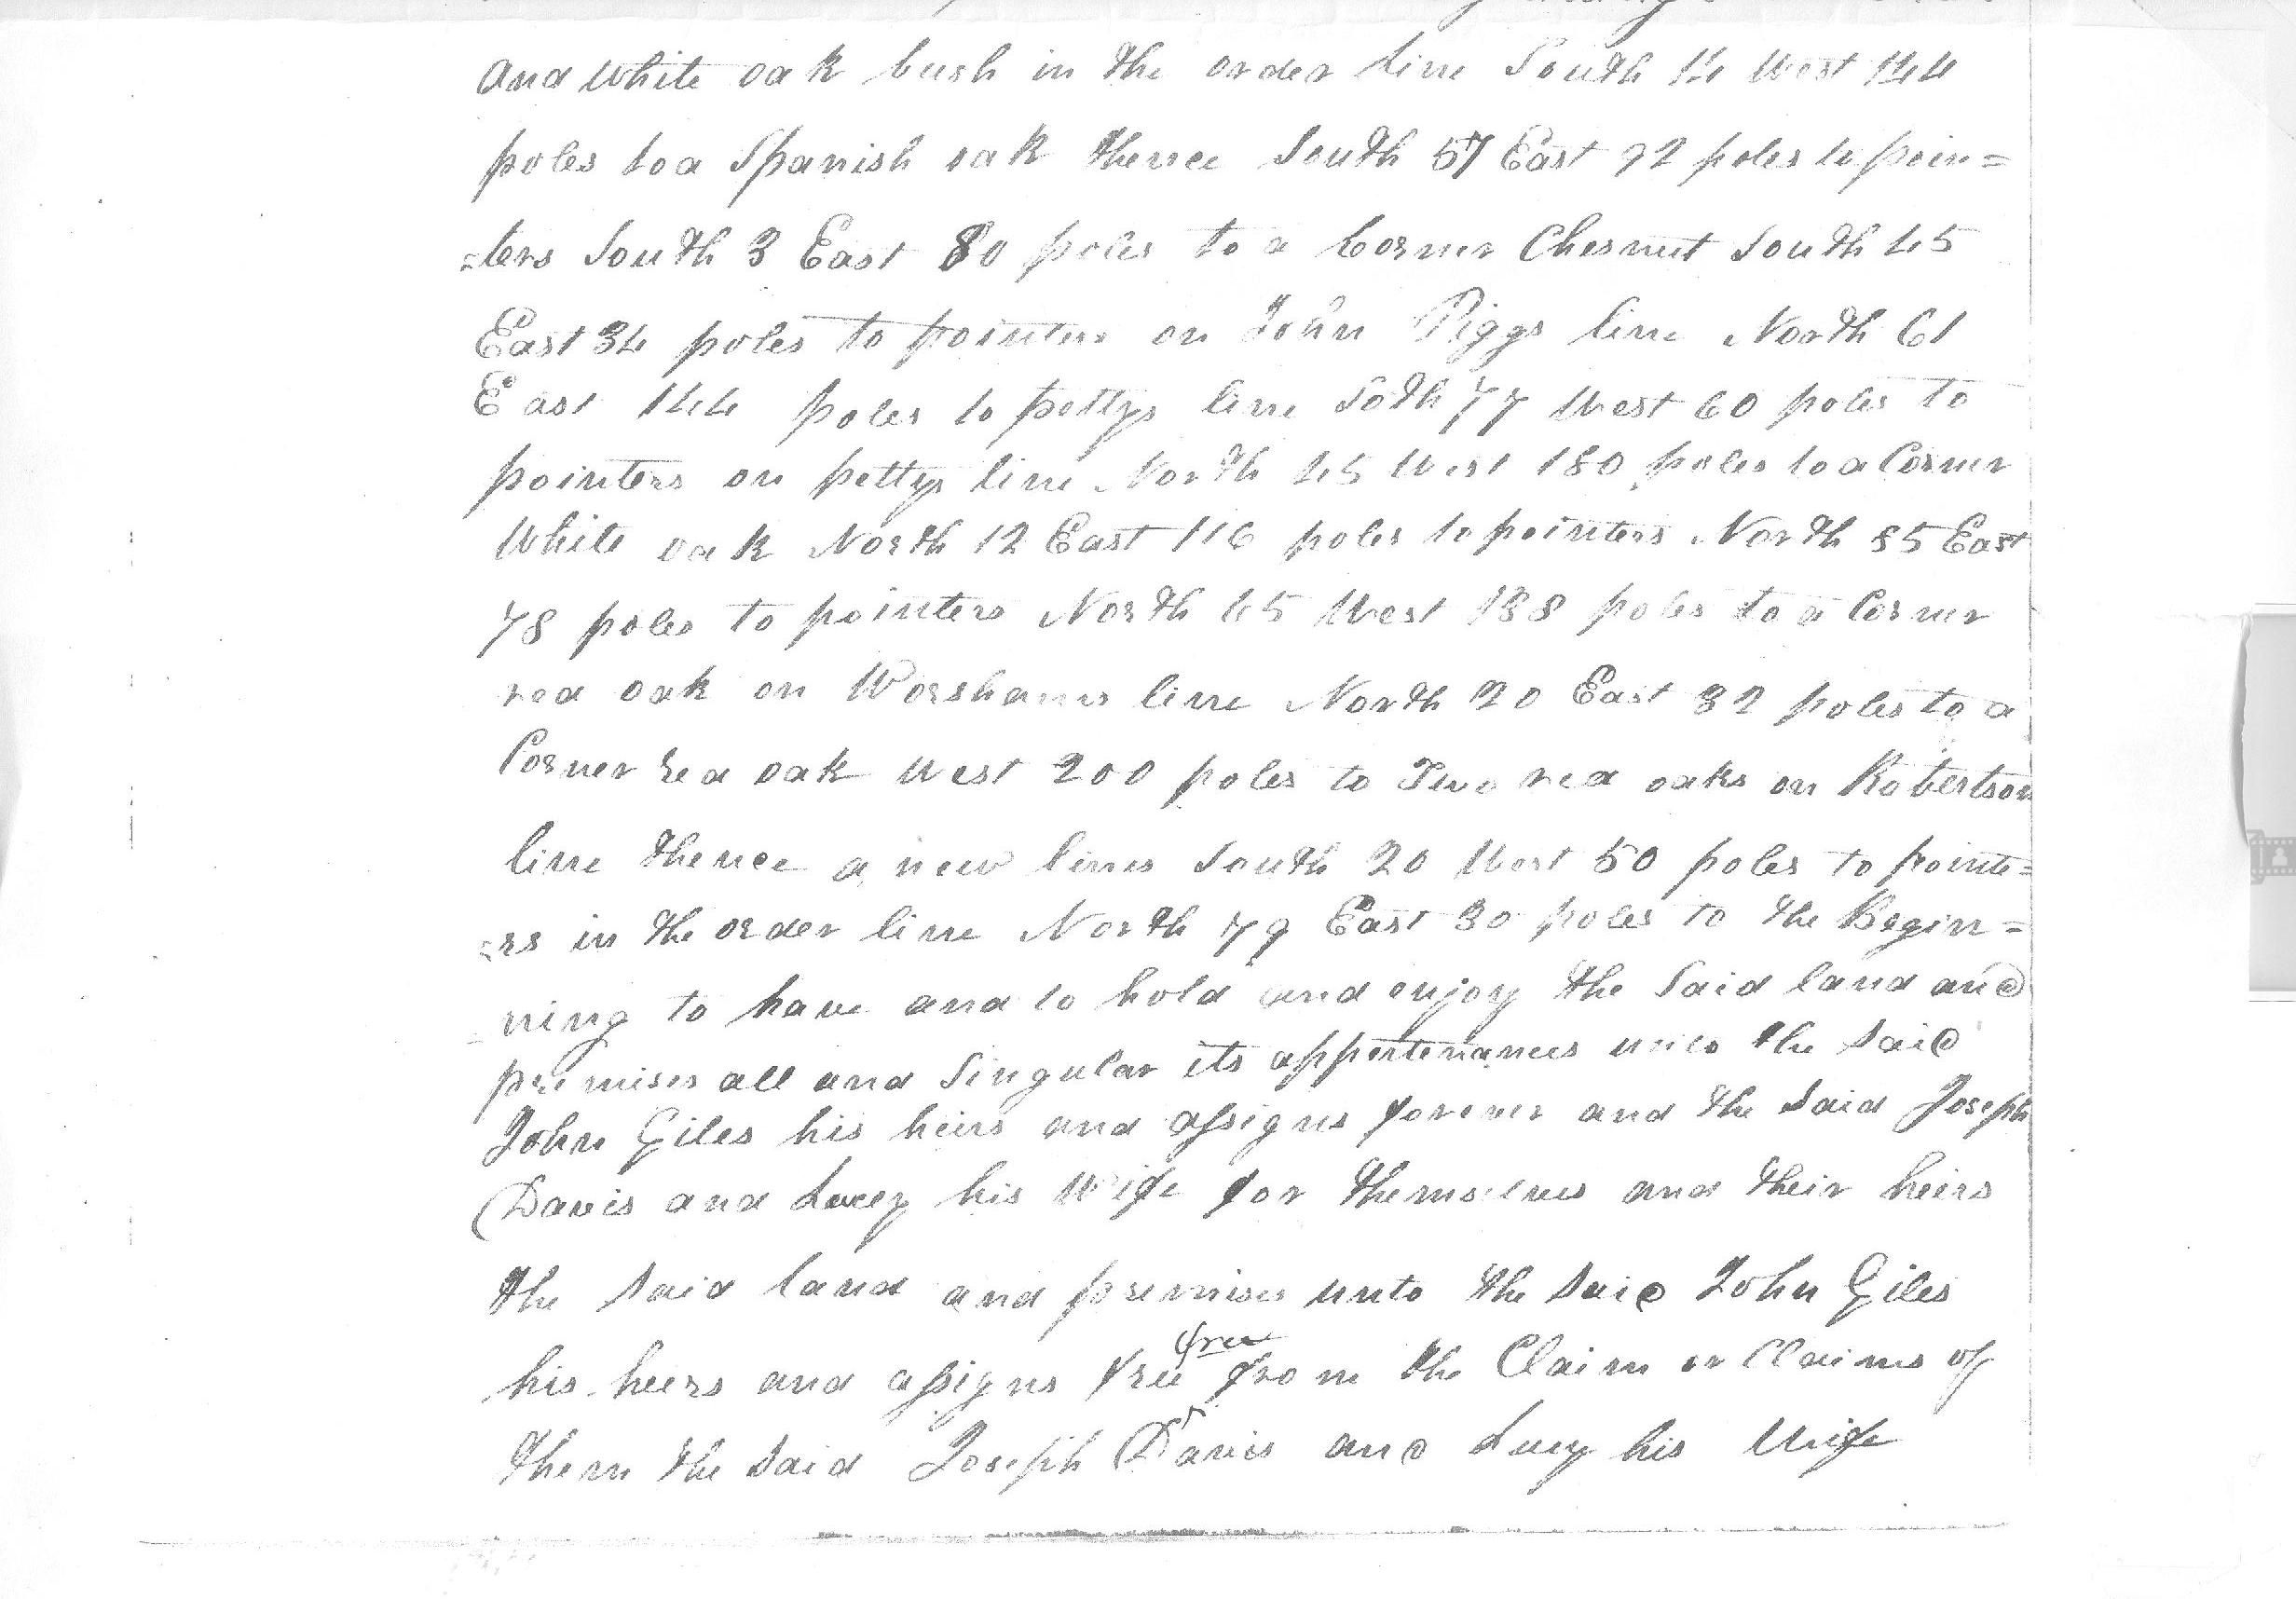 and white oak bush in the order line South 14 West 144
poles to a Spanish oak thence South 57 East 92 poles to poin=
=ters South 3 East 80 poles to a Corner Chesnut South 45
East 34 poles to pointers on John Piggs line North 61
East 144 poles to pettys line Soth 77 West 60 poles to
pointers on pettys line North 45 West 180 poles to a Corner
White oak North 12 East 116 poles to pointers North 85 East
78 poles to pointers North 45 West 138 poles to a Corner
red oak on Worshams line North 20 East 32 poles to a
Corner red oak West 200 poles to Two red oaks on Robertson
line thence a new lines South 20 West 50 poles to pointe=
=rs in the order line North 79 East 30 poles to the Begin=
=ning to have and to hold and enjoy the Said land and
premises all and Singular its appertenances unto the Said
John Giles his heirs and assigns forever and the Said Joseph
Davis and Lucy his Wife for themselves and their heirs
the Said land and premises unto the Said John Giles
his heirs and assigns free free from the Claim or Claims of
them the Said Joseph Davis and Lucy his Wife